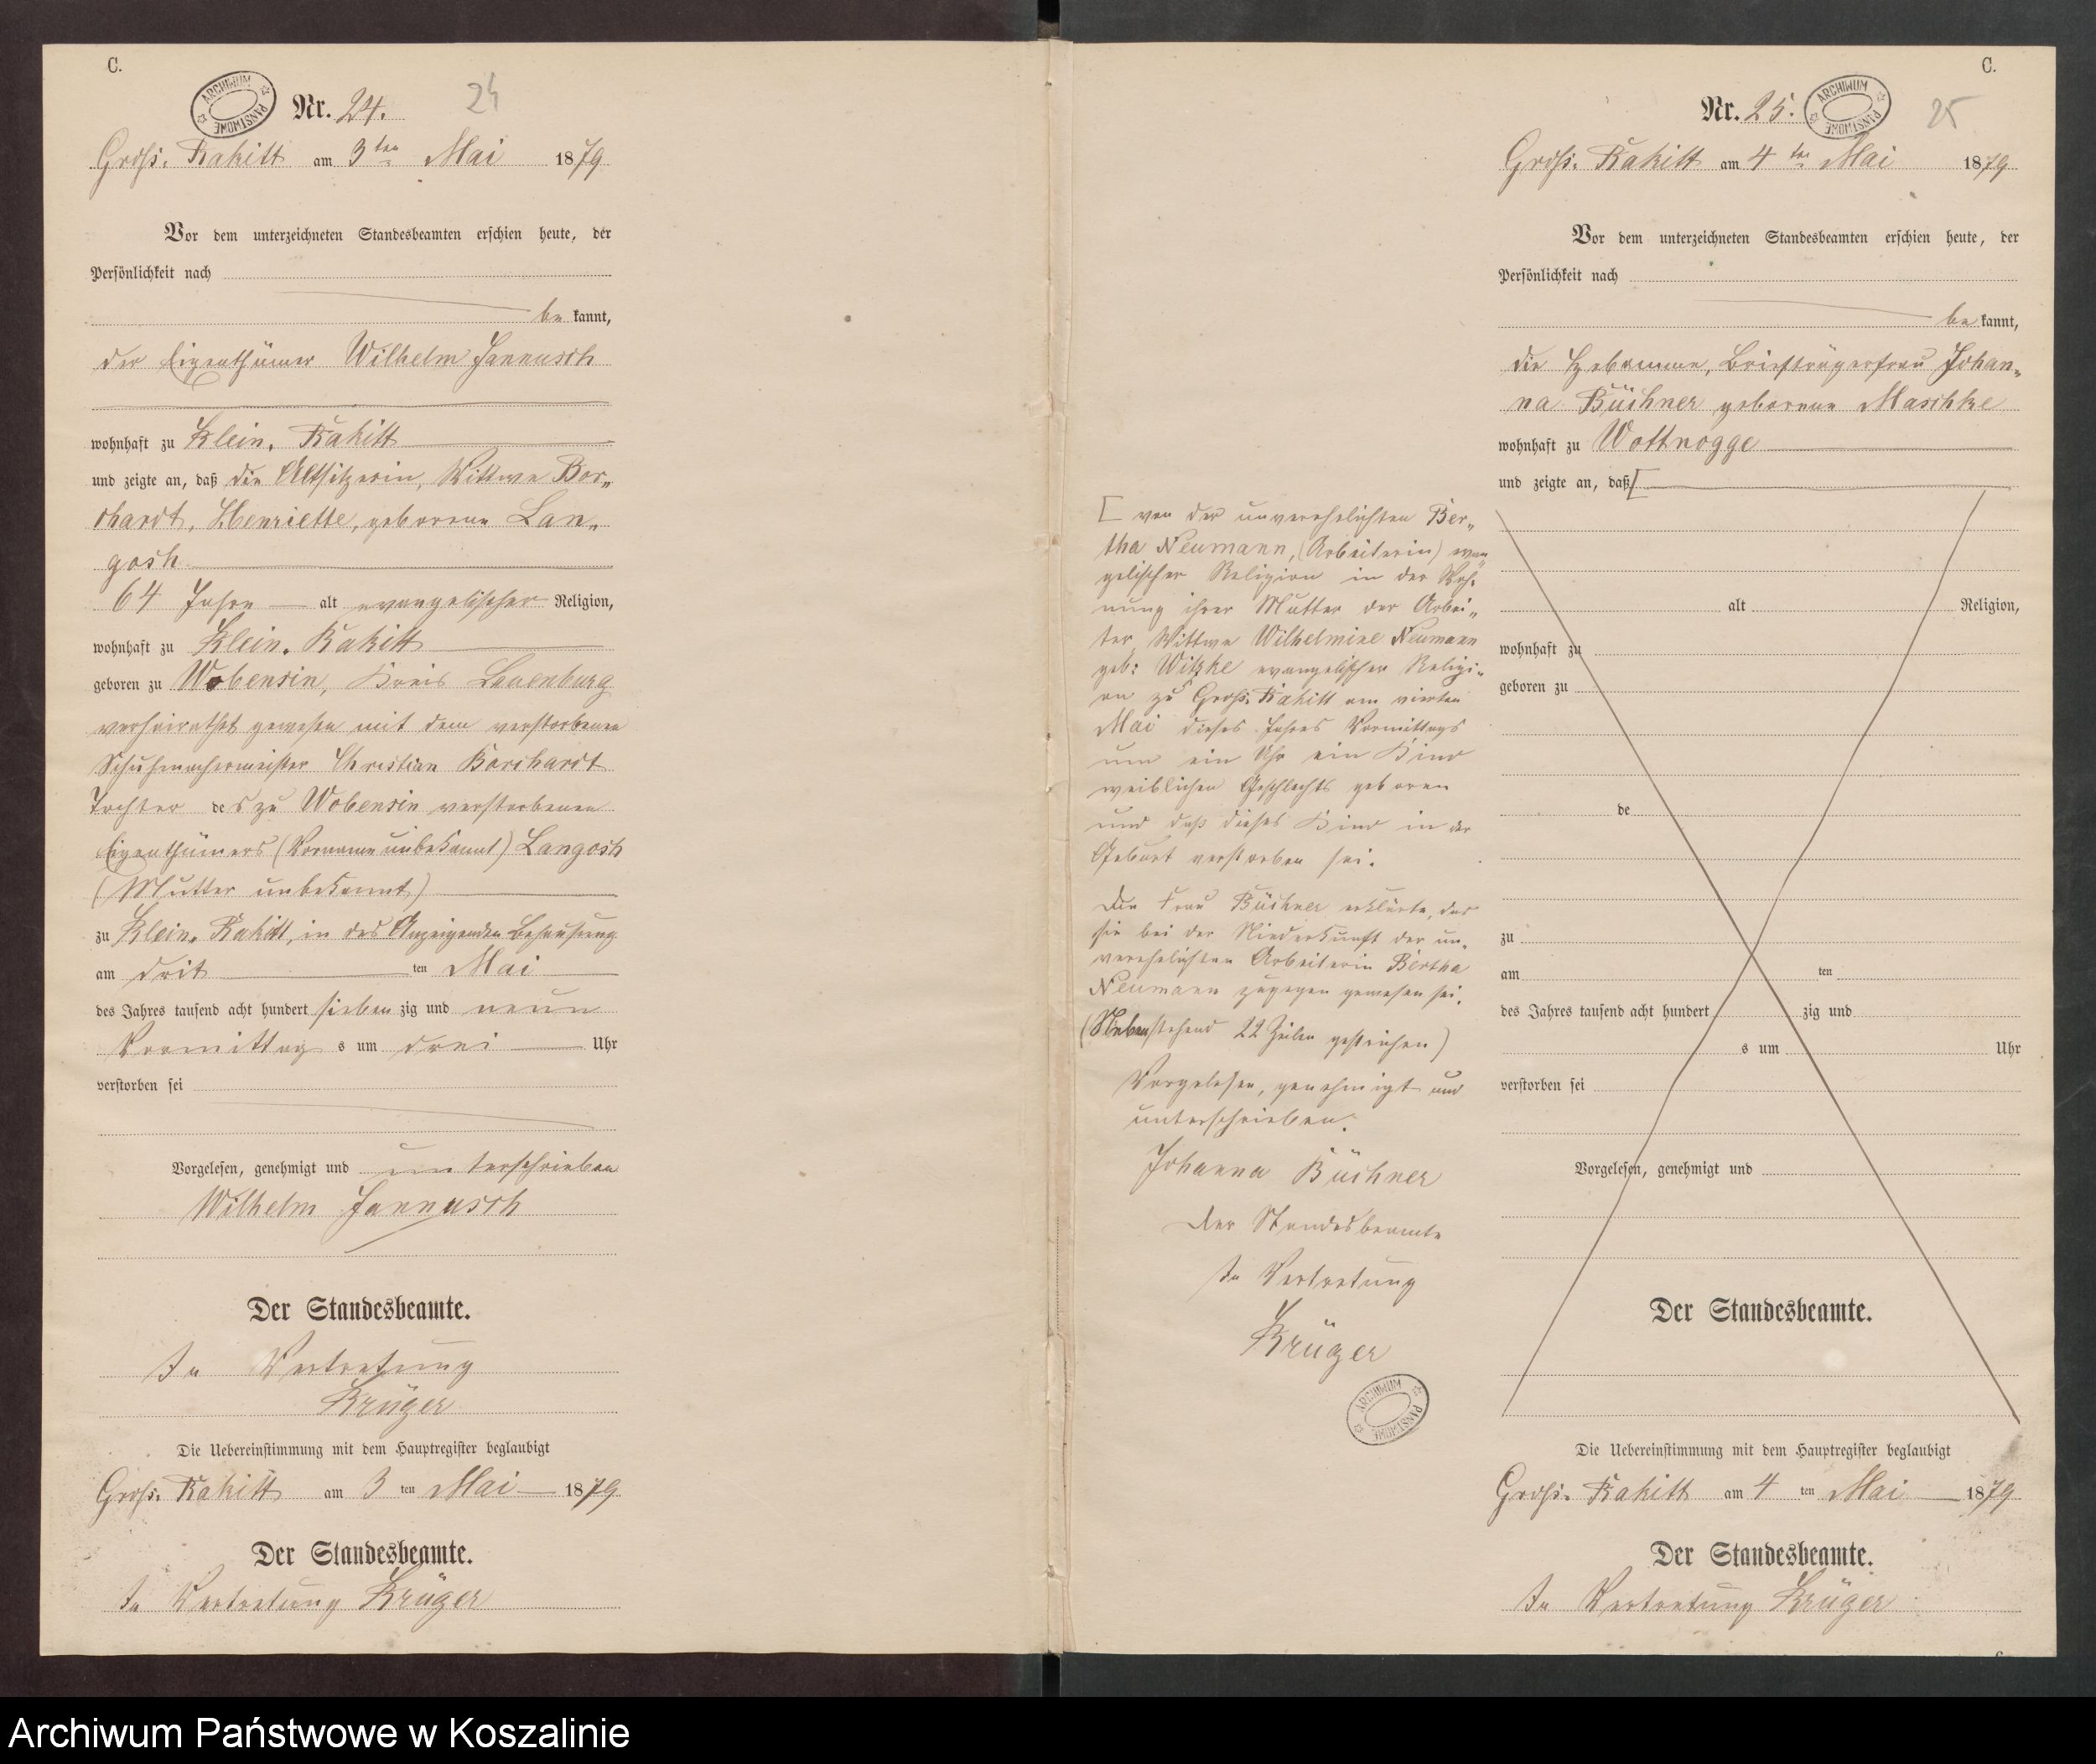 C.
ARCHIWUM PAŃSTWOWE
Nr. 24.
24
Groß. Rakitt am 3ten Mai 1879
Vor dem unterzeichneten Standesbeamten erschien heute, der
Persönlichkeit nach
be kannt,
der Eigenthümer Wilhelm Jannusch
wohnhaft zu Klein. Rakitt
und zeigte an, daß die Altsitzerin, Wittwe Bor„
chardt, Henriette, geborene Lan„
gosh
64 Jahre alt evangelischer Religion,
wohnhaft zu Klein. Rakitt
geboren zu Wobensin, Kreis Lauenburg
verheirathet gewesen mit dem verstorbenen
Schuhmachermeister Christian Borchardt
Tochter des zu Wobensin verstorbenen
Eigenthümers (Vorname unbekannt) Langosh
(Mutter unbekannt)
zu Klein. Rakitt, in des Anzeigenden Behausung
am drit ten Mai
des Jahres tausend acht hundert sieben zig und neun
Vormittag s um drei Uhr
verstorben sei
Vorgelesen, genehmigt und unterschrieben
Wilhelm Jannusch
Der Standesbeamte.
In Vertretung
Krüger
Die Uebereinstimmung mit dem Hauptregister beglaubigt
Groß. Rakitt am 3 ten Mai 1879
Der Standesbeamte.
In Vertretung Krüger
C.
Nr. 25.
ARCHIWUM PAŃSTWOWE
25
Groß. Rakitt am 4ten Mai 1879
Vor dem unterzeichneten Standesbeamten erschien heute, der
Persönlichkeit nach
be kannt,
die Hebamme, Briefträgerfrau Johan„
na Büchner geborene Maschke
wohnhaft zu Wottnogge
und zeigte an, daß [
[ von der unverehelichten Ber„
tha Neumann, (Arbeiterin) evan„
gelischer Religion in der Woh„
nung ihrer Mutter der Arbei„
ter Wittwe Wilhelmine Neumann
geb: Witzke evangelischer Religi„
on zu Groß. Rakitt am vierten
Mai dieses Jahres Vormittags
um ein Uhr ein Kind
weiblichen Geschlechts geboren
und daß dieses Kind in der
Geburt verstorben sei.
Die Frau Büchner erklärte, das
sie bei der Niederkunft der un„
verehelichten Arbeiterin Bertha
Neumann zugegen gewesen sei.
(Nebenstehend 22 Zeilen gestrichen)
Vorgelesen, genehmigt und
unterschrieben.
Johanna Büchner
Der Standesbeamte
In Vertretung
Krüger
ARCHIWUM PAŃSTWOWE
alt Religion,
wohnhaft zu
geboren zu
de
zu
am ten
des Jahres tausend acht hundert zig und
s um Uhr
verstorben sei
Vorgelesen, genehmigt und
Der Standesbeamte.
Die Uebereinstimmung mit dem Hauptregister beglaubigt
Groß. Rakitt am 4 ten Mai 1879
Der Standesbeamte.
In Vertretung Krüger
Archiwum Państwowe w Koszalinie